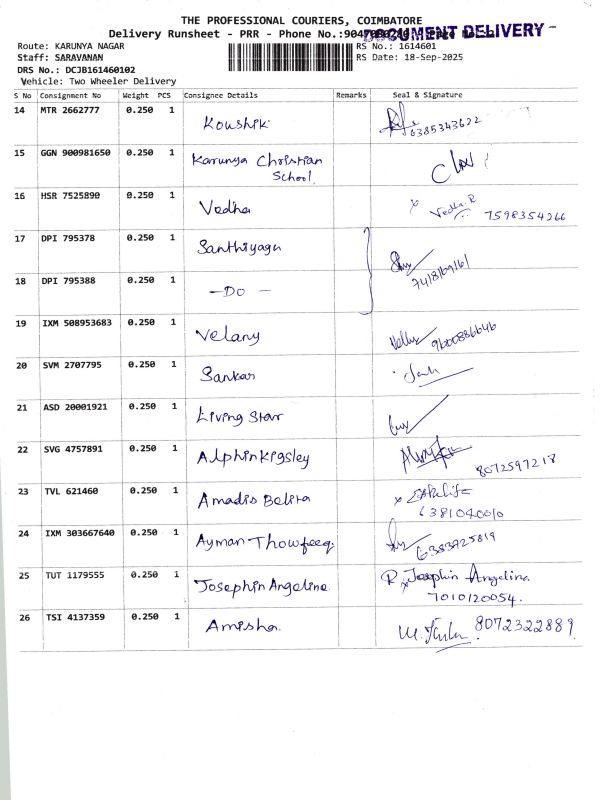 THE PROFESSIONAL COURIERS, COIMBATORE
Delivery Runsheet - PRR - Phone No.:
DOCUMENT DELIVERY
Route: KARUNYA NAGAR
RS No.: 1614601
Staff: SARAVANAN
RS Date: 18-Sep-2025
DRS No.: DCJB161460102
Vehicle: Two Wheeler Delivery
S No Consignment No Weight PCS Consignee Details Remarks Seal & Signature
14 MTR 2662777 0.250 1 Koushik 6385343622
15 GGN 900981650 0.250 1 Karunya Christian
School
16 HSR 7525890 0.250 1 Vedha Vedha.R 7598354266
17 DPI 795378 0.250 1 Santhiyagu
7418169161
18 DPI 795388 0.250 1 —Do—
19 IXM 508953683 0.250 1 Velany 9600886646
20 SVM 2707795 0.250 1 Sankar
21 ASD 20001921 0.250 1 Living Star
22 SVG 4757891 0.250 1 Alphinkigsley 8072597218
23 TVL 621460 0.250 1 Amadis Belita
6381040010
24 IXM 303667640 0.250 1 Ayman Thowfeeq. 6383725819
25 TUT 1179555 0.250 1 Josephin Angeline. R. Josephin Angeline.
7010120054.
26 TSI 4137359 0.250 1 Amisha. 8072322889.